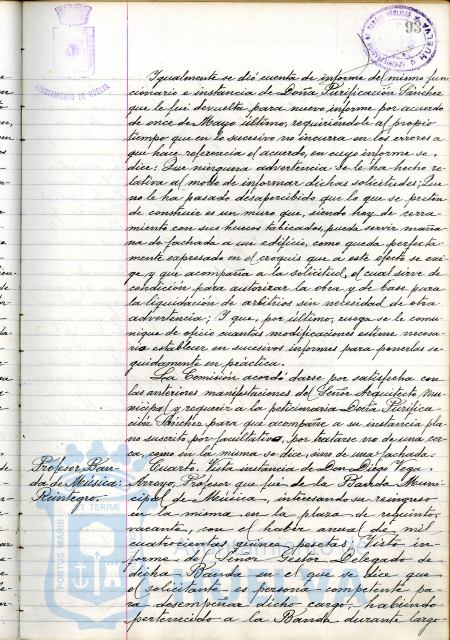 AYUNTAMIENTO DE HUELVA
93
Igualmente se dió cuenta de informe del mismo fun-
cionario e instancia de Doña Purificación Sánchez
que le fué devuelta para nuevo informe por acuerdo
de once de Mayo último, requiriéndole al propio
tiempo que en lo sucesivo no incurra en los errores a
que hace referencia el acuerdo, en cuyo informe se
dice: Que ninguna advertencia se le ha hecho re-
lativa al modo de informar dichas solicitudes; Que
no le ha pasado desapercibido que lo que se preten-
de construir es un muro que, siendo hoy de cerra-
miento con sus huecos tabicados, pueda servir maña-
na de fachada a un edificio, como queda perfecta-
mente expresado en el croquis que a este efecto se exi-
ge y que acompaña a la solicitud, el cual sirve de
condición para autorizar la obra y de base para
la liquidación de arbitrios sin necesidad de otra
advertencia; Y que, por último, ruega se le comu-
nique de oficio cuantas modificaciones estime necesa-
rio establecer en sucesivos informes para ponerlas se-
guidamente en práctica.
La Comisión acordó darse por satisfecha con
las anteriores manifestaciones del Señor Arquitecto Mu-
nicipal y requerir a la peticionaria Doña Purifica-
ción Sánchez para que acompañe a su instancia pla-
no suscrito por facultativo, por tratarse no de una cer-
ca, como en la misma se dice, sino de una fachada.
Profesor Ban-
da de Música:
Reintegro.
Cuarto. Vista instancia de Don Diego Vega
Arroyo, Profesor que fué de la Banda Muni-
cipal de Música, interesando su reingreso
en la misma, en la plaza de requinto,
vacante, con el haber anual de mil
cuatrocientas quince pesetas. Visto in-
forme del Señor Gestor Delegado de
dicha Banda en el que se dice que
el solicitante es persona competente pa-
ra desempeñar dicho cargo, habiendo
pertenecido a la Banda durante largo
PORTUS MARIS
ET TERRAE
Ayuntamiento de
HUELVA